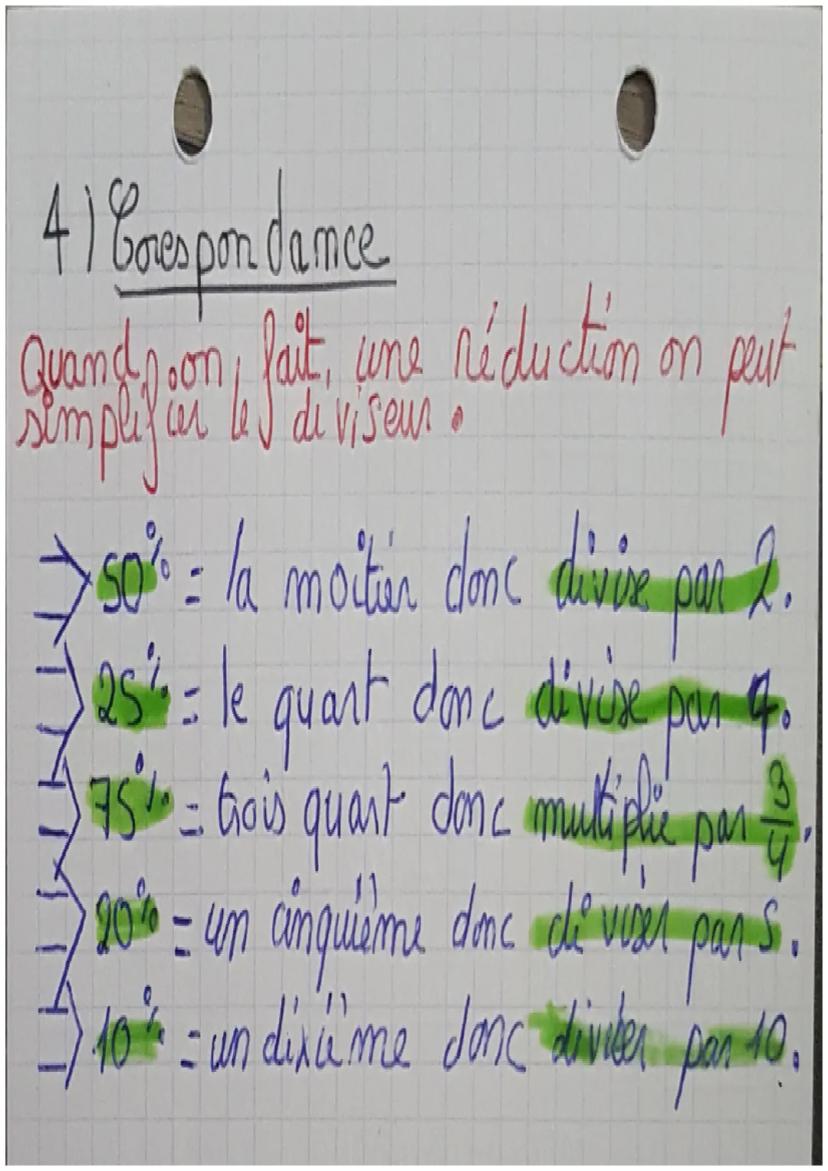 4) Corespondance
Quand on fait, une réduction on peut
simplifier le diviseur.
50% = la moitier donc divise par 2.
25% = le quart donc divise par 4.
75% = trois quart donc multiplie par 3/4.
20% = un cinquième donc diviser par 5.
10% = un dixième donc diviser par 10.